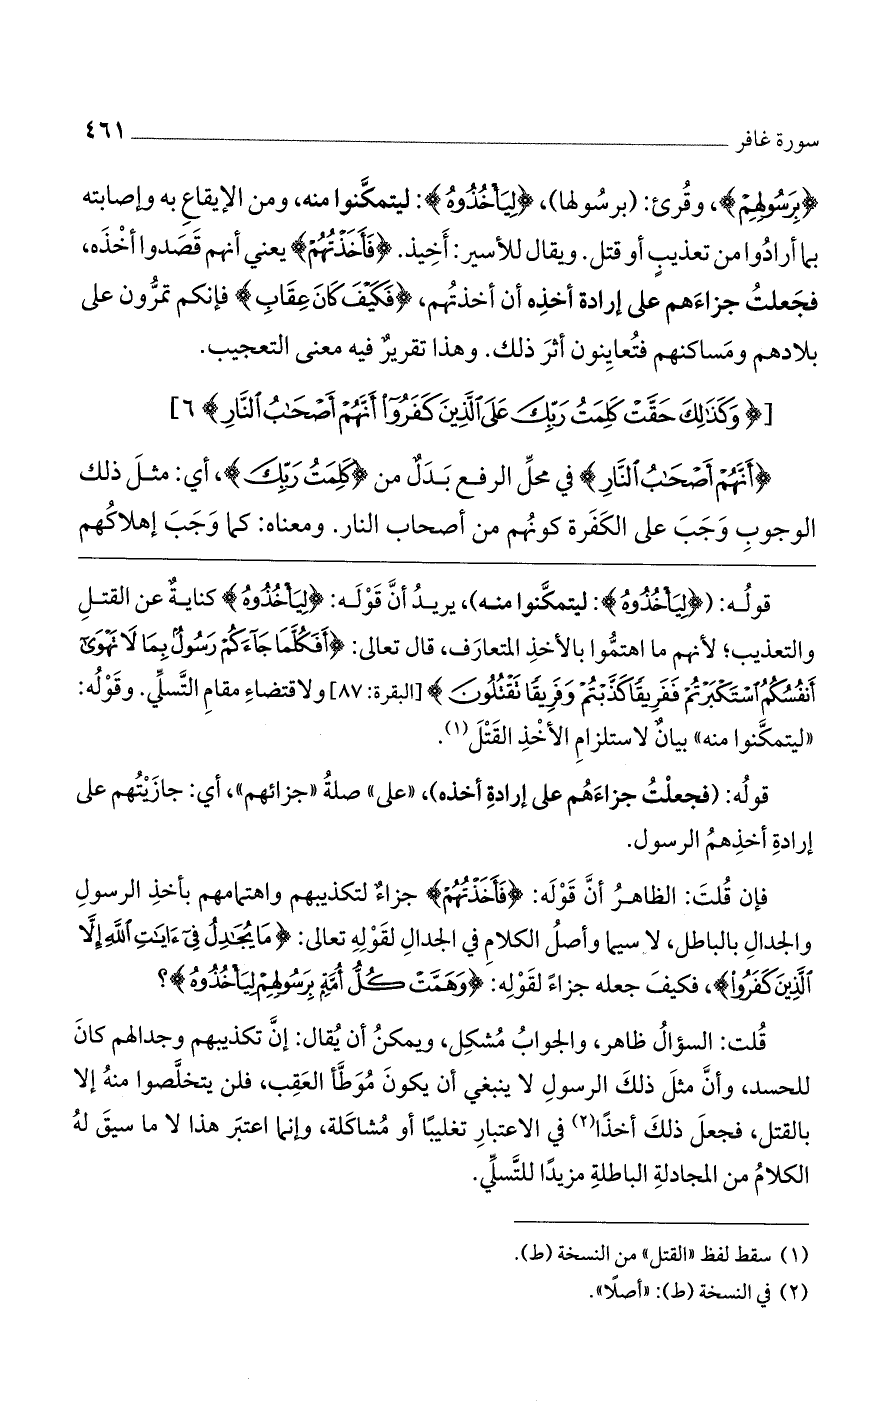 سورة غافر ٤٦١
﴿بِرَسُولِهِمْ﴾، وقُرئ: (برسُولها)، ﴿لِيَأْخُذُوهُ﴾: ليتمكَّنوا منه، ومن الإيقاعِ به وإصابته
بما أرادُوا من تعذيبٍ أو قتل. ويقال للأسير: أَخِيذ. ﴿فَأَخَذْتُهُمْ﴾ يعني أنهم قَصَدوا أخْذَه،
فجَعلتُ جزاءَهم على إرادة أخذِه أن أخذتُهم، ﴿فَكَيْفَ كَانَ عِقَابِ﴾ فإنكم تمرُّون على
بلادهم ومَساكنهم فتُعاينون أثرَ ذلك. وهذا تقريرٌ فيه معنى التعجيب.
[﴿وَكَذَٰلِكَ حَقَّتْ كَلِمَتُ رَبِّكَ عَلَى ٱلَّذِينَ كَفَرُوٓا۟ أَنَّهُمْ أَصْحَٰبُ ٱلنَّارِ﴾ ٦]
﴿أَنَّهُمْ أَصْحَٰبُ ٱلنَّارِ﴾ في محلِّ الرفـع بَـدَلٌ من ﴿كَلِمَتُ رَبِّكَ﴾، أي: مثـل ذلك
الوجوبِ وَجَبَ على الكَفَرة كونُهم من أصحاب النار. ومعناه: كما وَجَبَ إهلاكُهم
قولُـه: (﴿لِيَأْخُذُوهُ﴾: ليتمكَّنوا منـه)، يريـدُ أنَّ قَوْلَـه: ﴿لِيَأْخُذُوهُ﴾ كنايـةٌ عن القتـلِ
والتعذيب؛ لأنهم ما اهتمُّوا بالأخذِ المتعارَف، قال تعالى: ﴿أَفَكُلَّمَا جَآءَكُمْ رَسُولٌۢ بِمَا لَا تَهْوَىٰٓ
أَنفُسُكُمُ ٱسْتَكْبَرْتُمْ فَفَرِيقًا كَذَّبْتُمْ وَفَرِيقًا تَقْتُلُونَ﴾ [البقرة: ٨٧] ولاقتضاءِ مقامِ التَّسلِّي. وقوْلُه:
«ليتمكَّنوا منه» بيانٌ لاستلزامِ الأخْذِ القَتْلَ(١).
قولُه: (فجعلْتُ جزاءَهُم على إرادةِ أخذه)، «على» صلةُ «جزائهم»، أي: جازَيْتُهم على
إرادةِ أخذِهمُ الرسول.
فإن قُلتَ: الظاهـرُ أنَّ قَوْلَه: ﴿فَأَخَذْتُهُمْ﴾ جزاءٌ لتكذيبهم واهتمامهم بأخذِ الرسولِ
والجدالِ بالباطل، لا سيما وأصلُ الكلامِ في الجدالِ لقَوْلِهِ تعالى: ﴿مَا يُجَٰدِلُ فِىٓ ءَايَٰتِ ٱللَّهِ إِلَّا
ٱلَّذِينَ كَفَرُوا۟﴾، فكيفَ جعله جزاءً لقوْلِه: ﴿وَهَمَّتْ كُلُّ أُمَّةٍۭ بِرَسُولِهِمْ لِيَأْخُذُوهُ﴾؟
قُلت: السؤالُ ظاهر، والجوابُ مُشكِل، ويمكنُ أن يُقال: إنَّ تكذيبهم وجدالهم كانَ
للحسد، وأنَّ مثلَ ذلكَ الرسولِ لا ينبغي أن يكونَ مُوَطَّأ العَقِب، فلن يتخلَّصوا منهُ إلا
بالقتل، فجعلَ ذلكَ أخذًا(٢) في الاعتبارِ تغليبًا أو مُشاكَلة، وإنما اعتبرَ هذا لا ما سيقَ لهُ
الكلامُ من المجادلةِ الباطلةِ مزيدًا للتَّسلِّي.
(١) سقط لفظ «القتل» من النسخة (ط).
(٢) في النسخة (ط): «أصلًا».